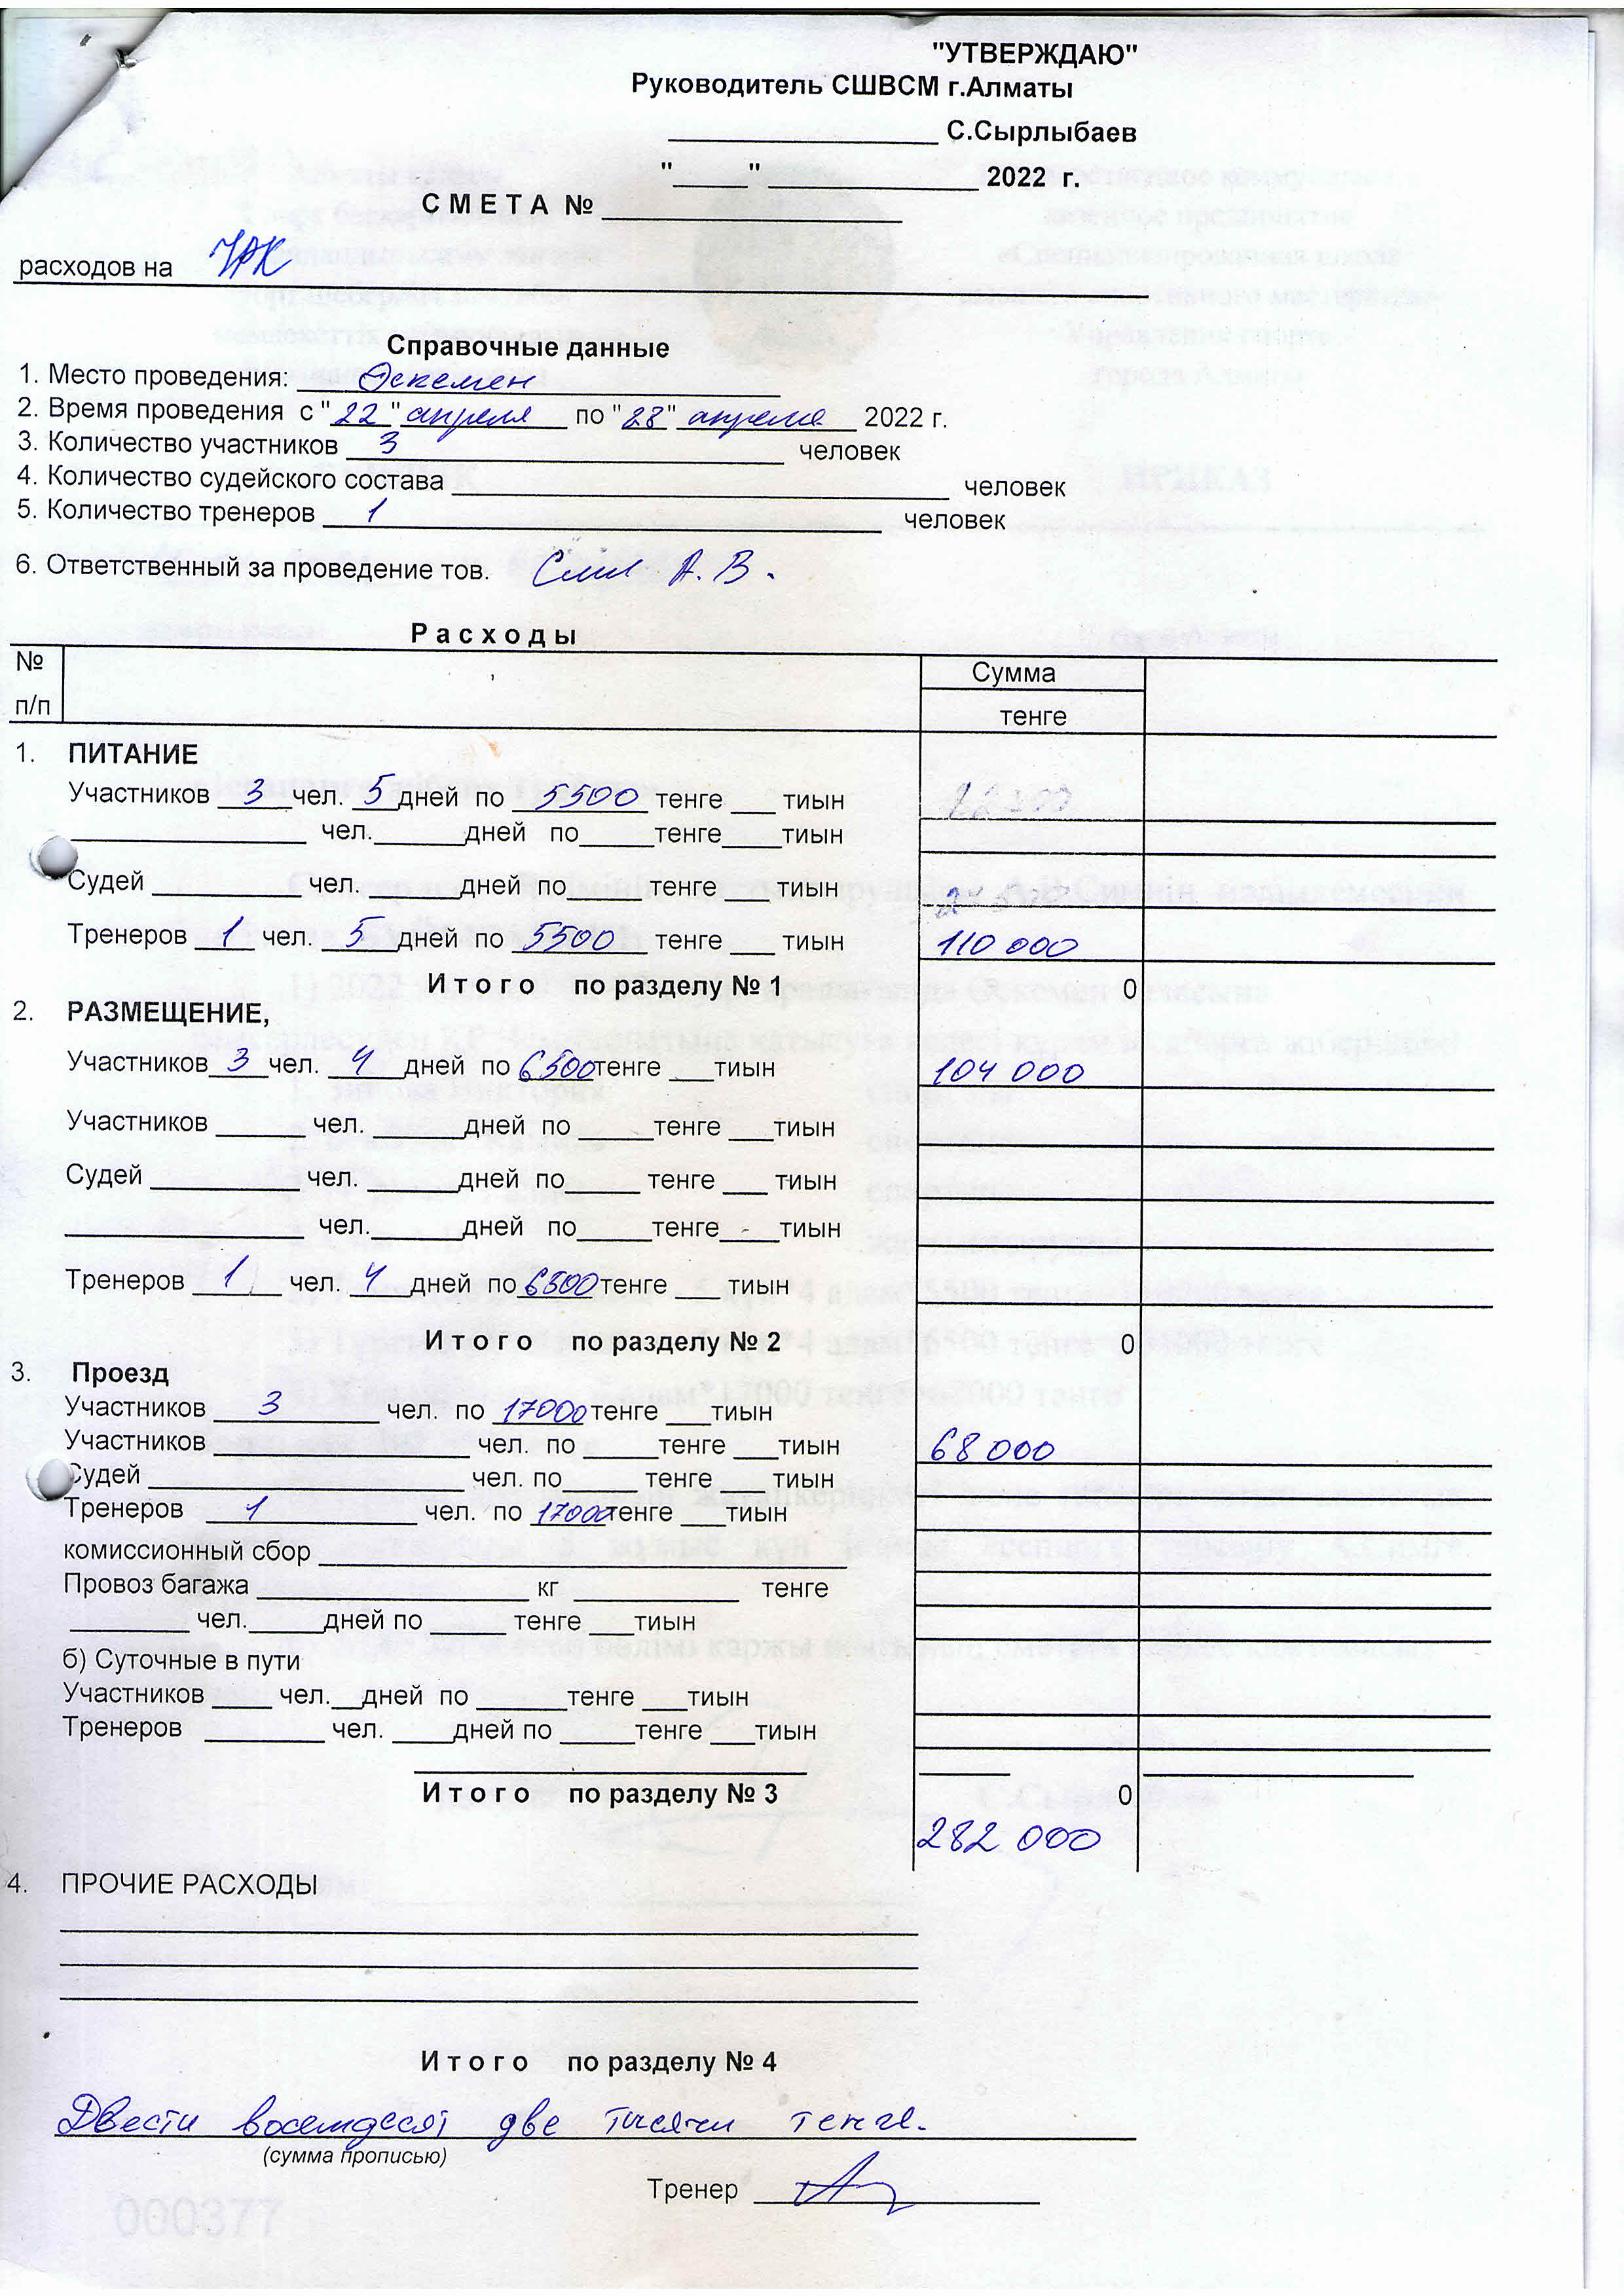 "УТВЕРЖДАЮ"
Руководитель СШВСМ г.Алматы
__________________ С.Сырлыбаев
"_____" ______________ 2022 г.
С М Е Т А № ____________________
расходов на ЧРК
Справочные данные
1. Место проведения: Өскемен
2. Время проведения с "22" апреля по "28" апреля 2022 г.
3. Количество участников 3 человек
4. Количество судейского состава ____________________ человек
5. Количество тренеров 1 человек
6. Ответственный за проведение тов. Сим А. В.
Р а с х о д ы
№ п/п Сумма
тенге
1. ПИТАНИЕ
Участников 3 чел. 5 дней по 5500 тенге ___ тиын
________________ чел.______дней по_____тенге____тиын
Судей __________ чел. ______дней по_____тенге ___тиын
Тренеров 1 чел. 5 дней по 5500 тенге ___тиын 110 000
И т о г о по разделу № 1 0
2. РАЗМЕЩЕНИЕ,
Участников 3 чел. 4 дней по 6500 тенге ___тиын 104 000
Участников ______ чел. ______дней по _____тенге ___тиын
Судей __________ чел. ______дней по_____ тенге ___ тиын
________________ чел.______дней по_____тенге____тиын
Тренеров 1 чел. 4 дней по 6500 тенге ___ тиын
И т о г о по разделу № 2 0
3. Проезд
Участников 3 чел. по 17000 тенге ___тиын
Участников _________________ чел. по _____тенге ___тиын 68 000
Судей _____________________ чел. по_____ тенге ___ тиын
Тренеров 1 чел. по 17000 тенге ___тиын
комиссионный сбор ___________________________________
Провоз багажа __________________ кг ___________ тенге
________ чел._____дней по _____ тенге ___тиын
б) Суточные в пути
Участников ____ чел.__дней по ______тенге ___тиын
Тренеров ________ чел. ____дней по _____тенге ___тиын
И т о г о по разделу № 3 0
282 000
4. ПРОЧИЕ РАСХОДЫ
И т о г о по разделу № 4
Двести восемдесят две тысячи тенге.
(сумма прописью)
Тренер ___________________
000377